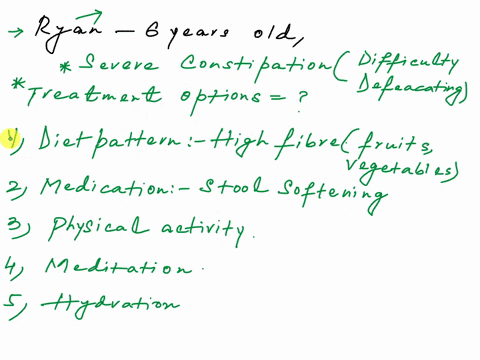 → Ryan - 6 years old,
* Severe Constipation (Difficulty Defeacating)
* Treatment options = ?
1) Diet pattern :- High fibre (fruits, vegetables)
2) Medication :- Stool Softening
3) Physical activity.
4) Meditation.
5) Hydration